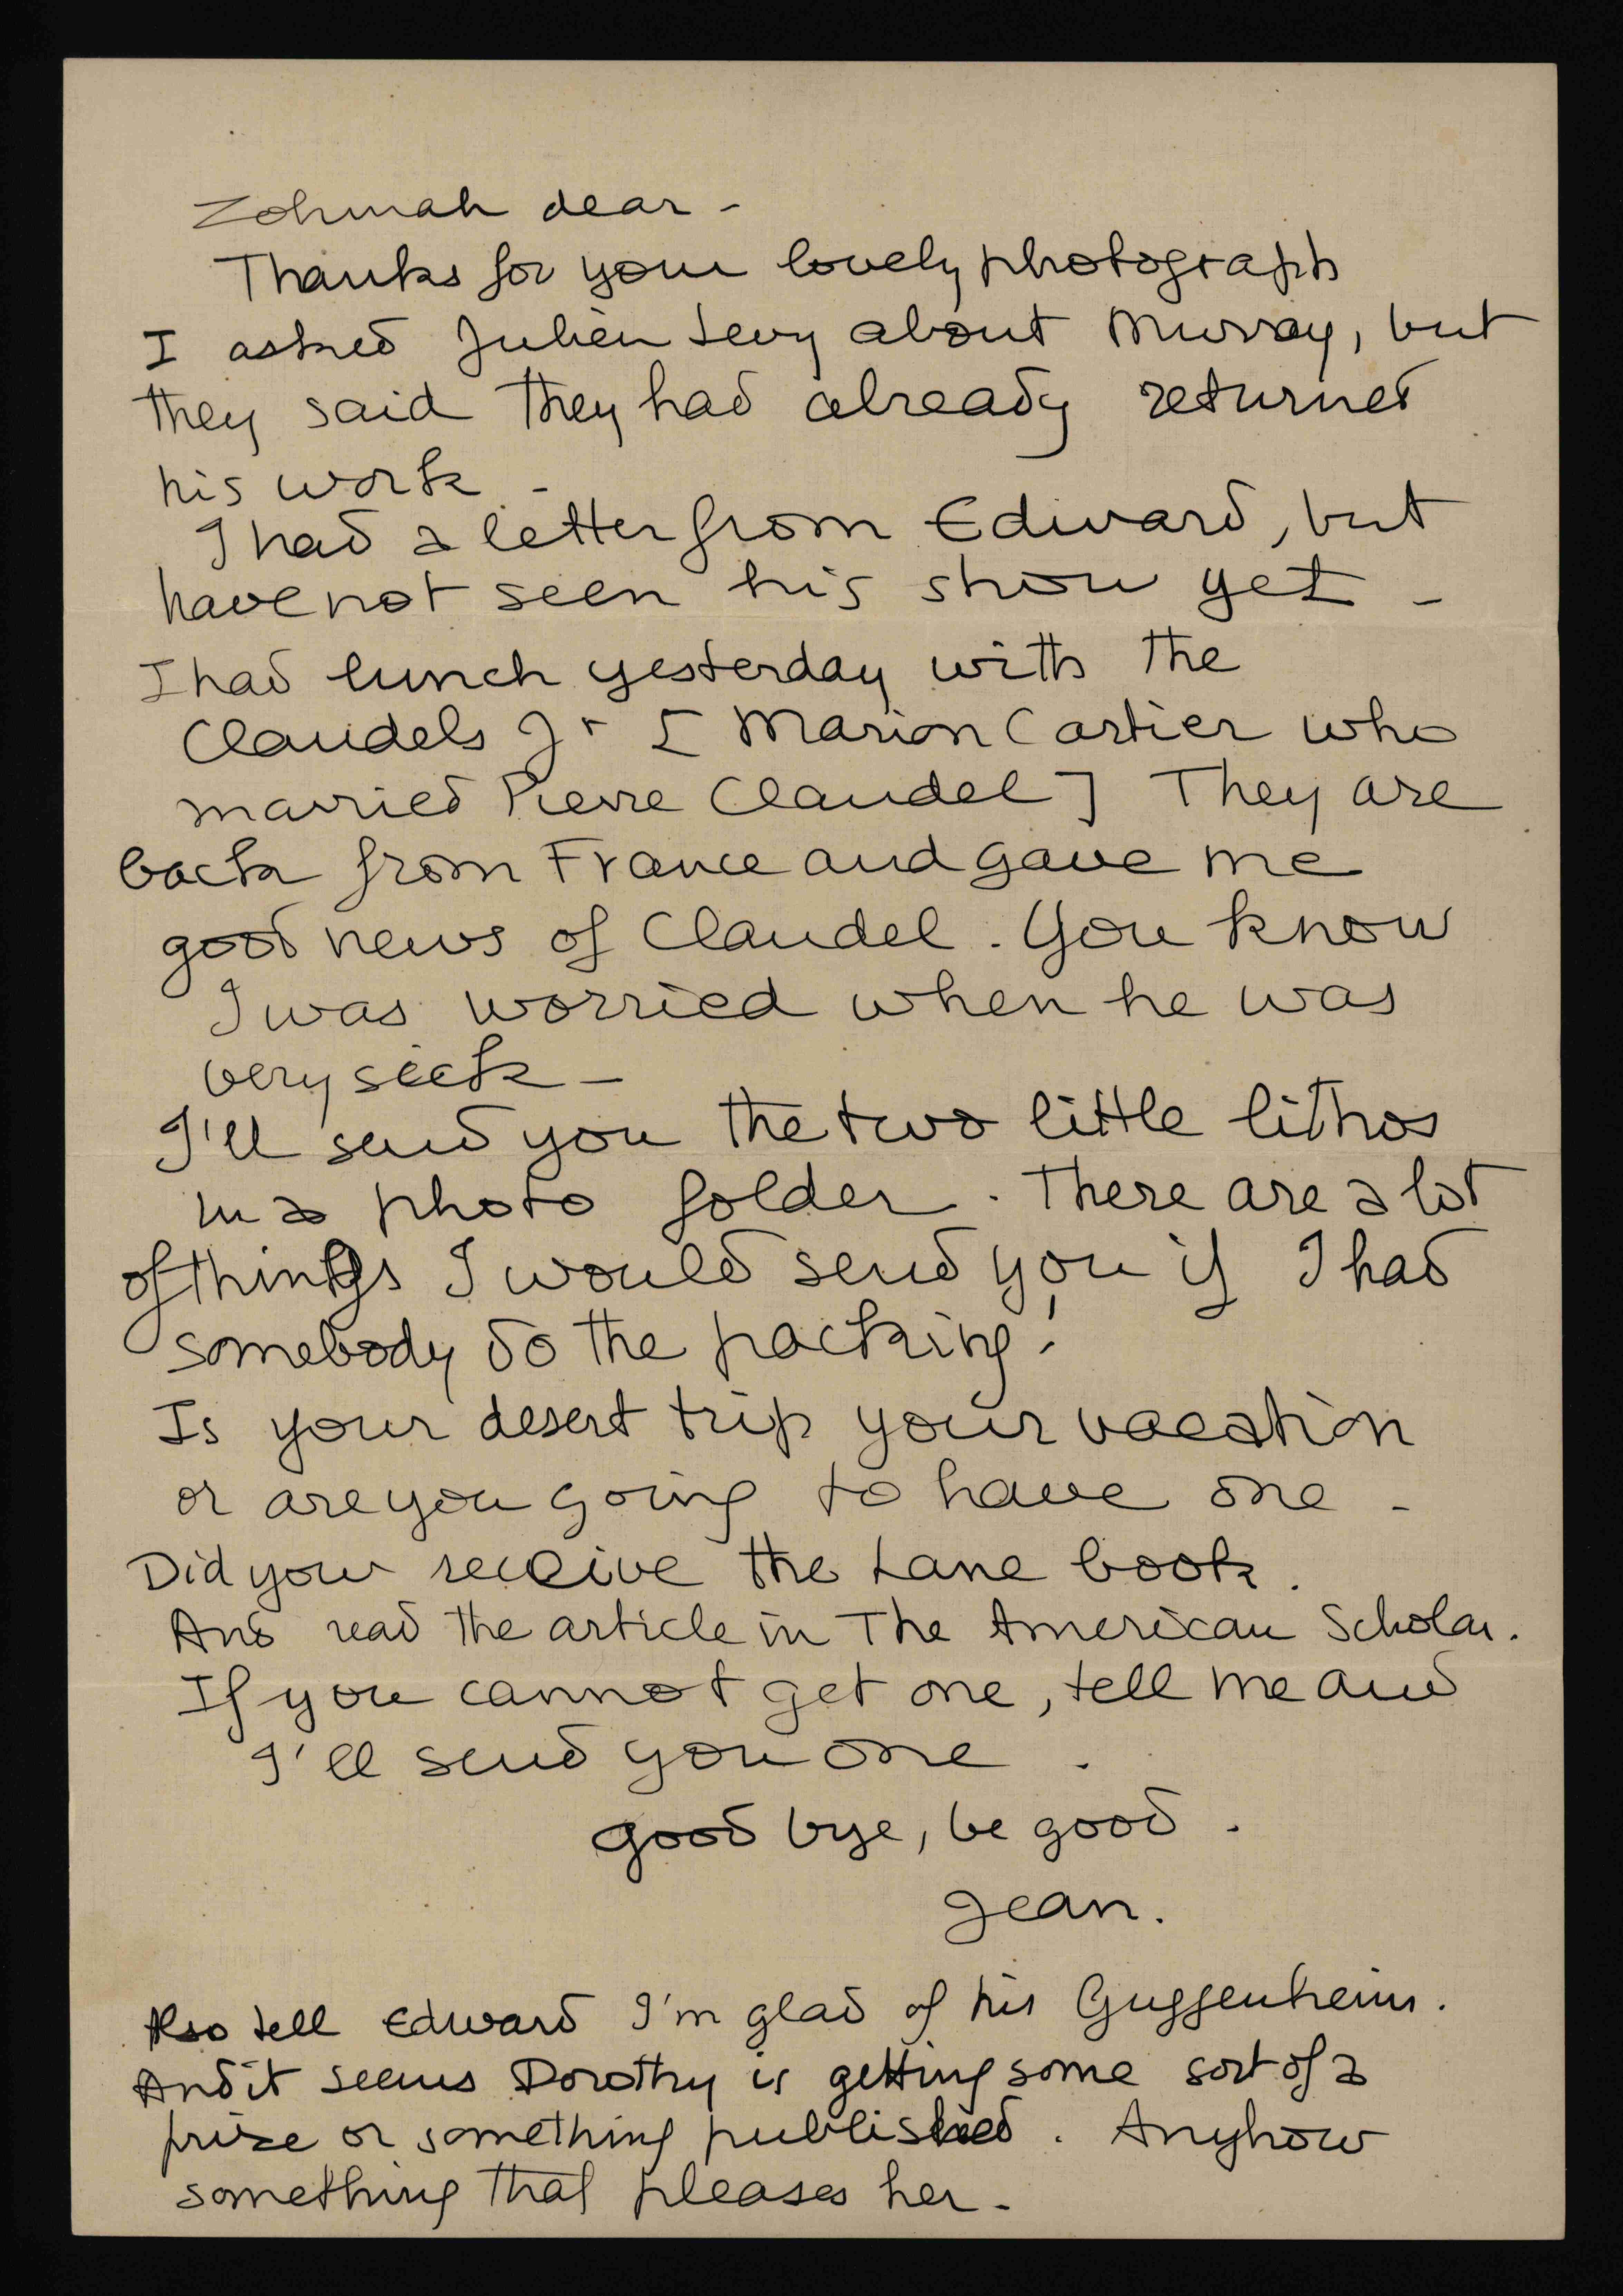 Zohmah dear -
Thanks for your lovely photograph
I asked Julien Levy about Murray, but
they said they had already returned
his work -
I had a letter from Edward, but
have not seen his show yet -
I had lunch yesterday with the
Claudels Jr [Marion Cartier who
married Pierre Claudel] They are
back from France and gave me
good news of Claudel. You know
I was worried when he was
very sick -
I'll send you the two little lithos
in a photo folder. There are a lot
of things I would send you if I had
somebody do the packing!
Is your desert trip your vacation
or are you going to have one -
Did you receive the Lane book.
And read the article in The American Scholar.
If you cannot get one, tell me and
I'll send you one.
good bye, be good.
Jean.
Also tell Edward I'm glad of his Guggenheim.
And it seems Dorothy is getting some sort of a
prize or something published. Anyhow
something that pleases her.